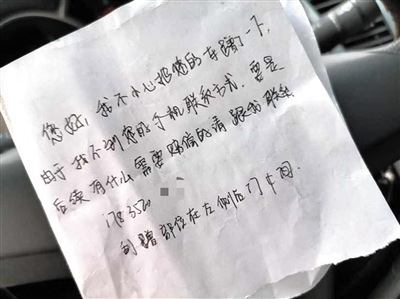 您好，我不小心把您的车蹭了一下，
由于我不到您的手机联系方式，要是
后续有什么需要赔偿的请跟我联系
178350
剐蹭部位在左侧后门车门.